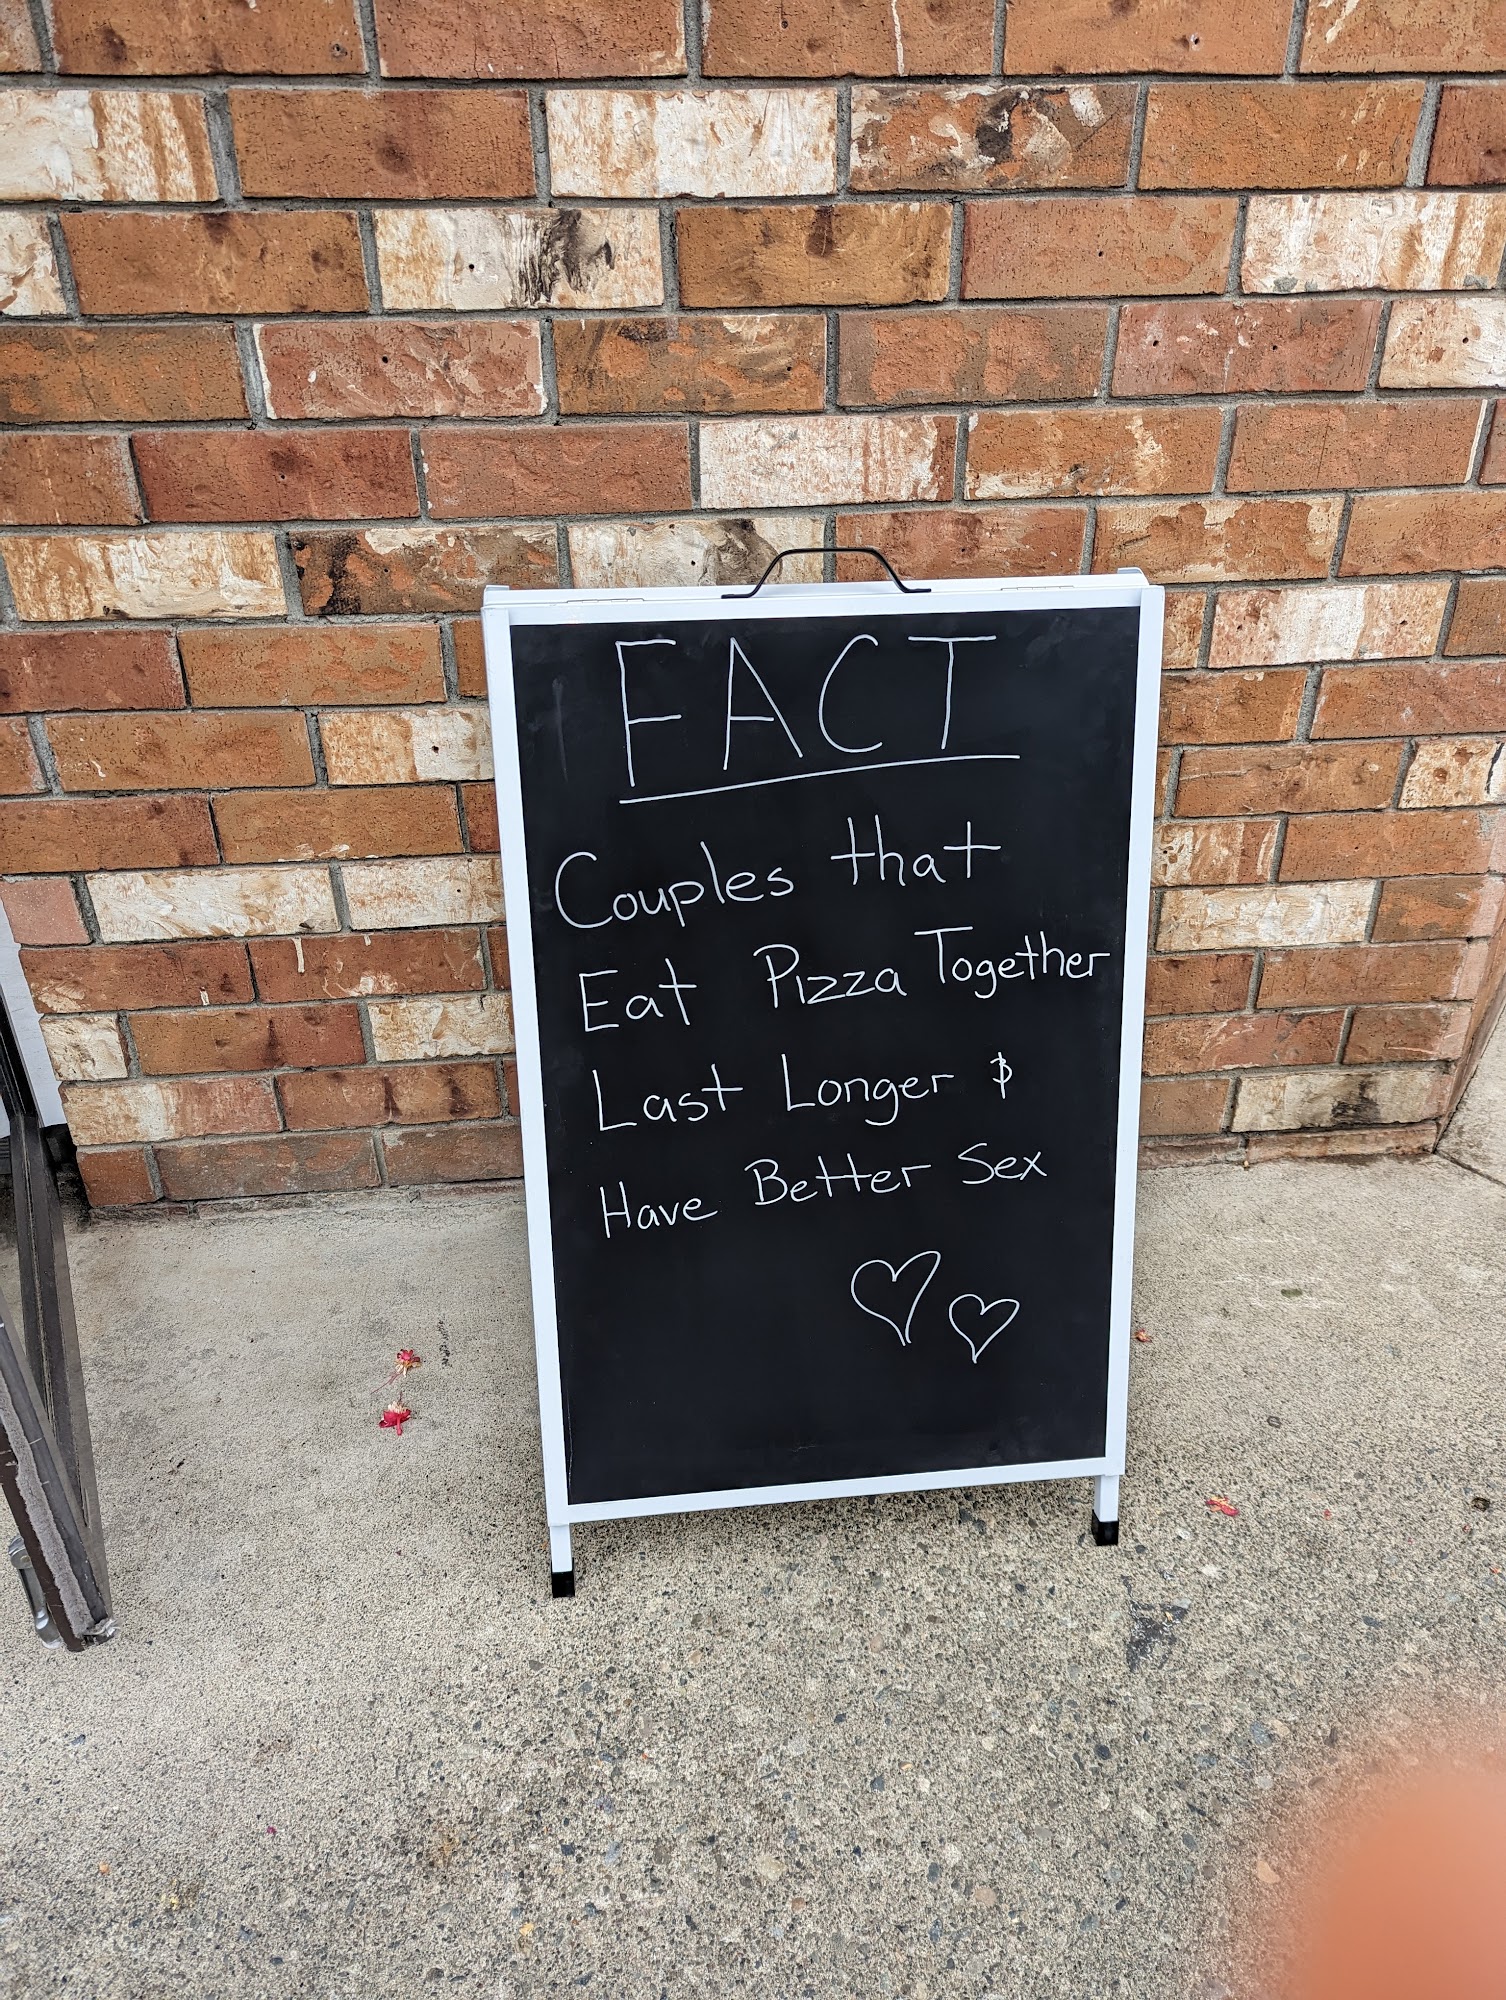 FACT
Couples that
Eat Pizza Together
Last Longer &
Have Better Sex